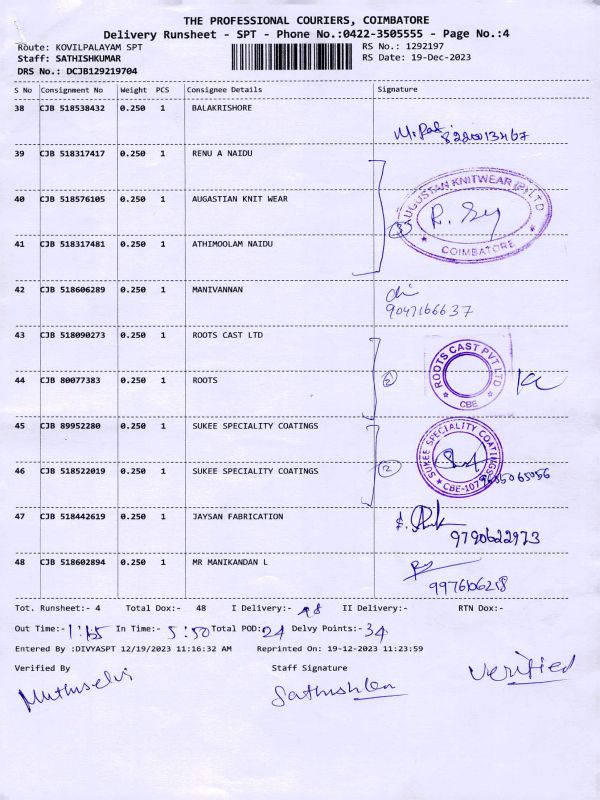 THE PROFESSIONAL COURIERS, COIMBATORE
Delivery Runsheet - SPT - Phone No.:0422-3505555 - Page No.:4
Route: KOVILPALAYAM SPT
RS No.: 1292197
Staff: SATHISHKUMAR
RS Date: 19-Dec-2023
DRS No.: DCJB129219704
S No Consignment No Weight PCS Consignee Details Signature
38 CJB 518538432 0.250 1 BALAKRISHORE
39 CJB 518317417 0.250 1 RENU A NAIDU
40 CJB 518576105 0.250 1 AUGASTIAN KNIT WEAR
AUGUSTAN KNITWEAR (P) LTD
COIMBATORE
41 CJB 518317481 0.250 1 ATHIMOOLAM NAIDU
42 CJB 518606289 0.250 1 MANIVANNAN
9047166637
43 CJB 518090273 0.250 1 ROOTS CAST LTD
ROOTS CAST PVT LTD
CBE
44 CJB 80077383 0.250 1 ROOTS
2
45 CJB 89952280 0.250 1 SUKEE SPECIALITY COATINGS
SUKEE SPECIALITY COATINGS
CBE-107
46 CJB 518522019 0.250 1 SUKEE SPECIALITY COATINGS
2
47 CJB 518442619 0.250 1 JAYSAN FABRICATION
9790622973
48 CJB 518602894 0.250 1 MR MANIKANDAN L
Tot. Runsheet:- 4 Total Dox:- 48 I Delivery:- 48 II Delivery:- RTN Dox:-
Out Time:- In Time:- 5:50 Total POD: 24 Delvy Points:- 34
Entered By :DIVYASPT 12/19/2023 11:16:32 AM Reprinted On: 19-12-2023 11:23:59
Verified By
Staff Signature
Verified
Muthuselvi